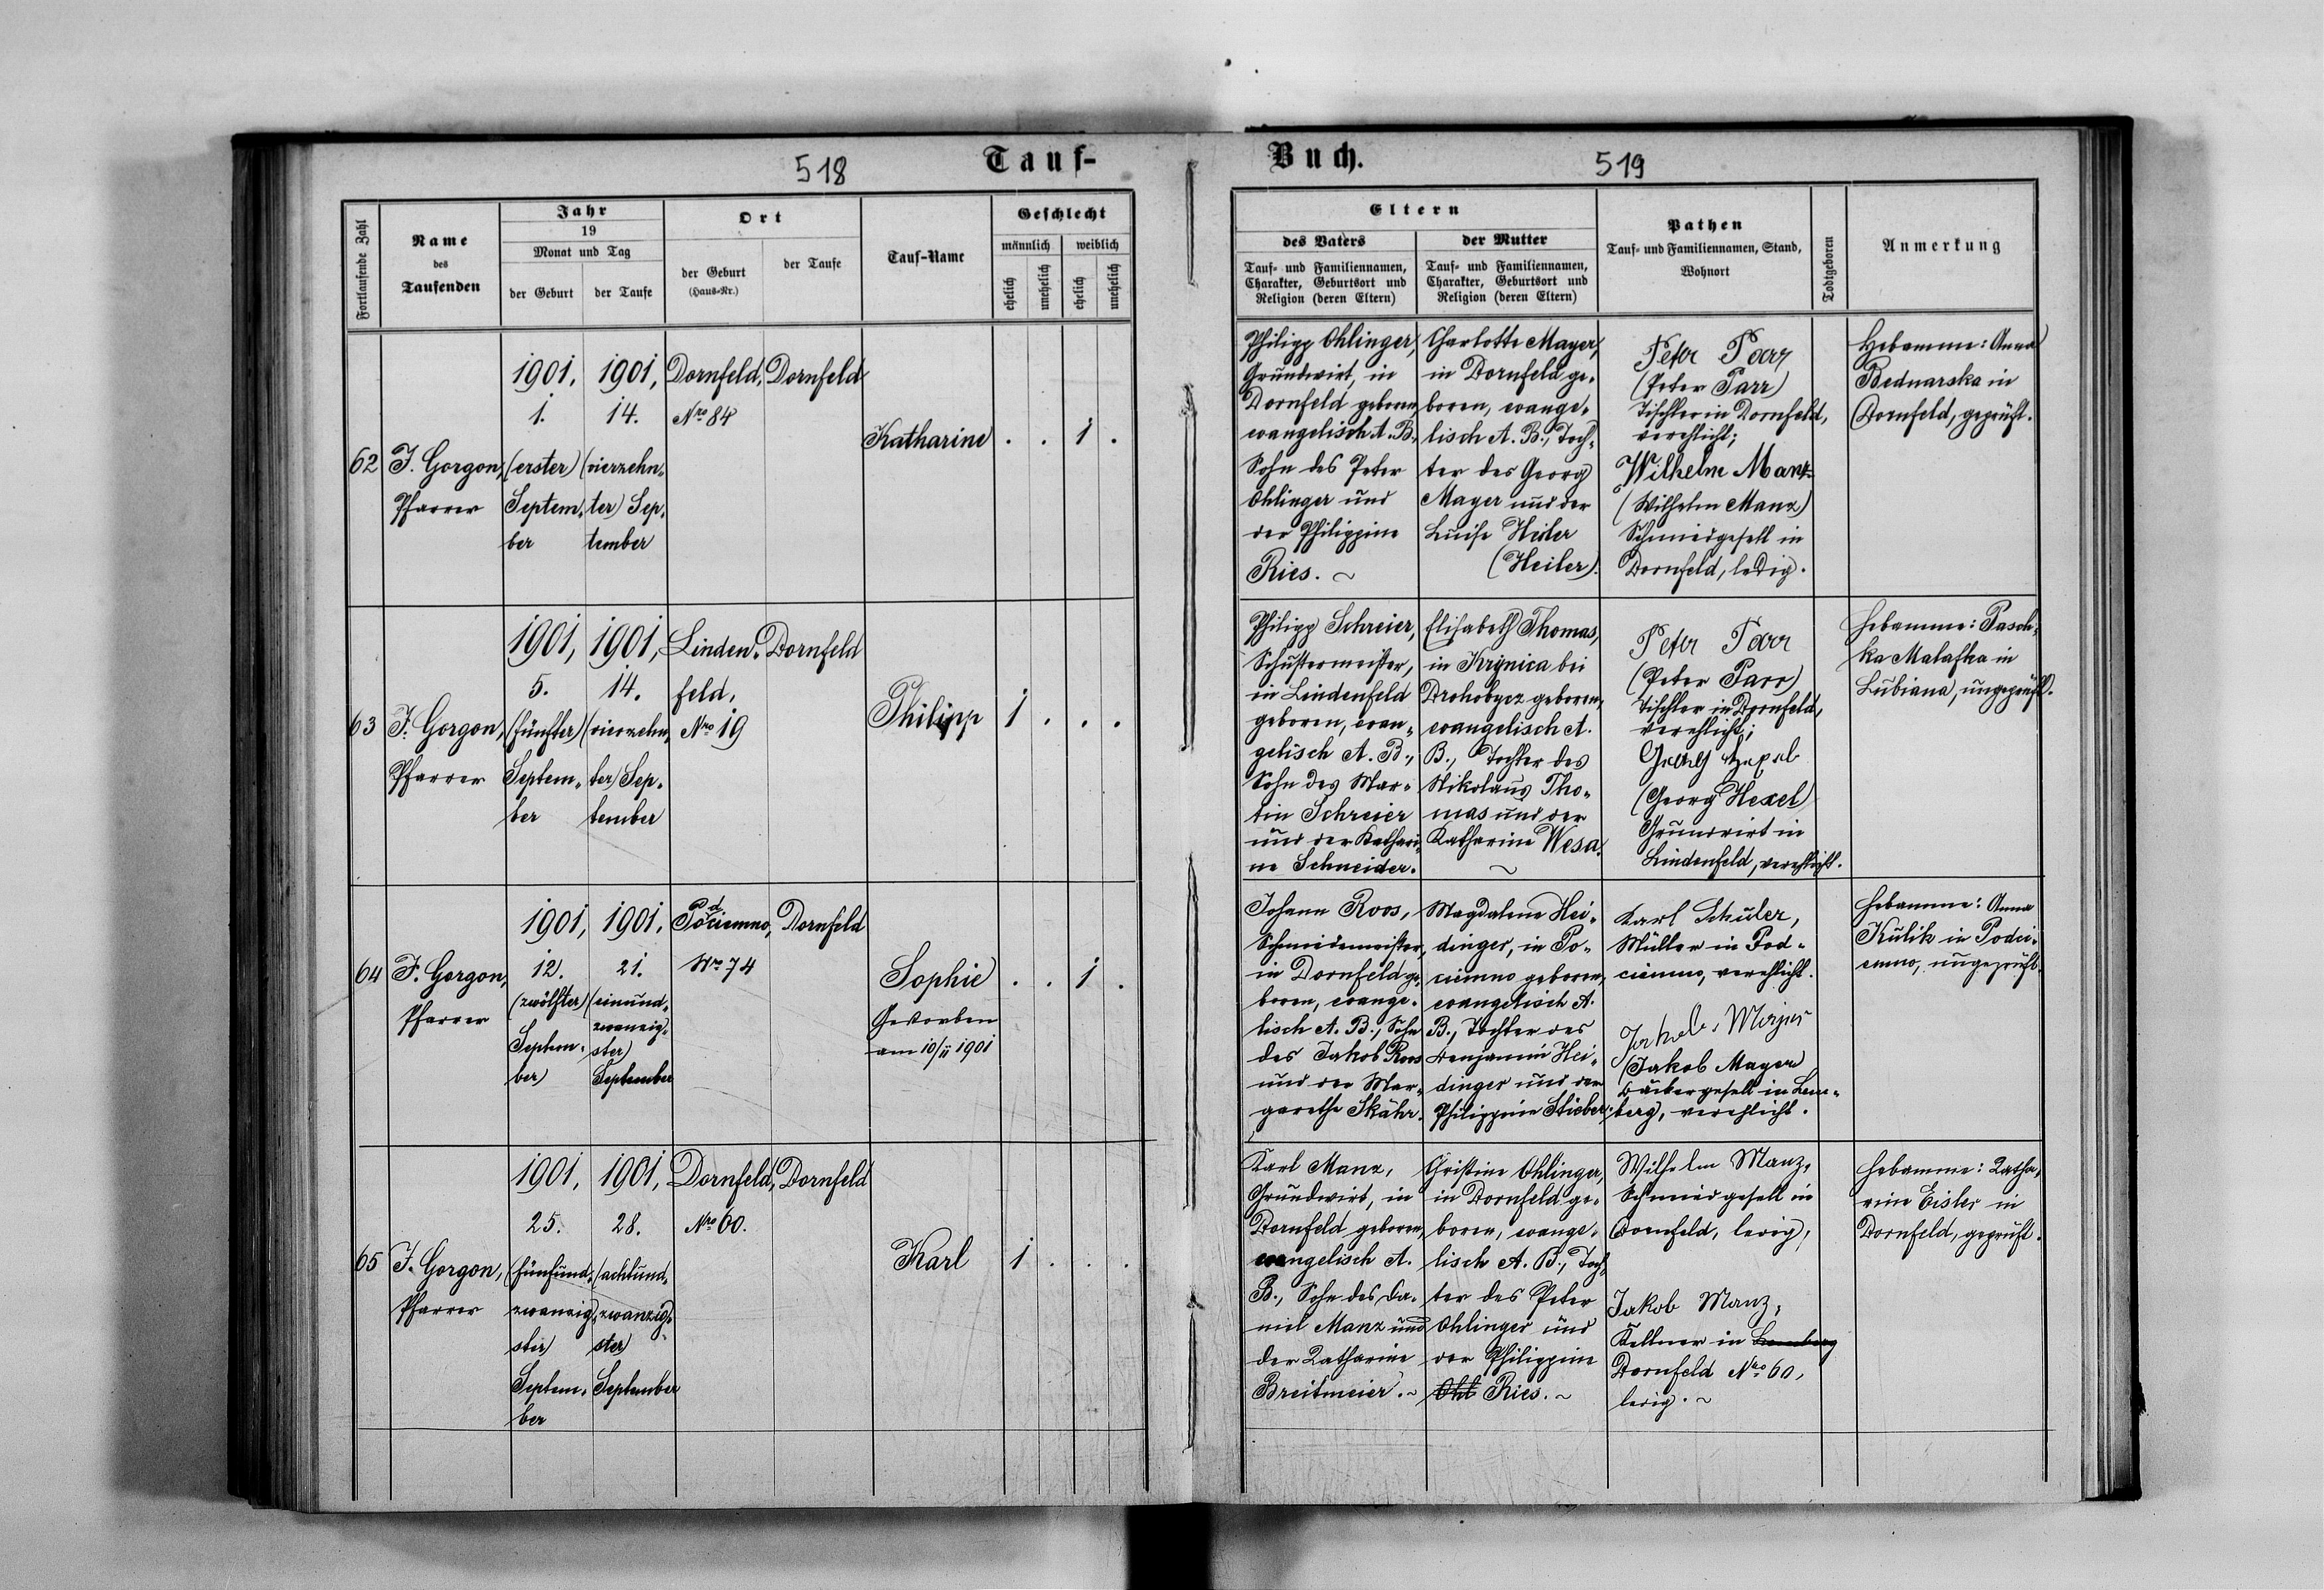 518
Tauf-
Fortlaufende Zahl
Name
des
Taufenden
Jahr
19
Monat und Tag
der Geburt
der Taufe
Ort
der Geburt
(Haus-Nr.)
der Taufe
Tauf-Name
Geschlecht
männlich
weiblich
ehelich
unehelich
ehelich
unehelich
62
F. Gorgon,
Pfarrer
1901,
1.
(erster)
Septem-
ber
1901,
14.
(vierzehn-
ter) Sep-
tember
Dornfeld,
Nro 84
Dornfeld
Katharine
. . 1 .
63
F. Gorgon,
Pfarrer
1901,
5.
(fünfter)
Septem-
ber
1901,
14.
(vierzehn-
ter) Sep-
tember
Linden-
feld,
Nro 19
Dornfeld
Philipp
1 . . .
64
F. Gorgon,
Pfarrer
1901,
12.
(zwölfter)
Septem-
ber
1901.
21.
(einund-
zwanzig-
ster)
September
Podciemno,
Nro 74
Dornfeld
Sophie
Gestorben
am 10/II 1901
. . 1 .
65
F. Gorgon,
Pfarrer
1901,
25.
(fünfund-
zwanzig-
ster)
Septem-
ber
1901,
28.
(achtund-
zwanzig-
ster)
September
Dornfeld,
Nro 60.
Dornfeld
Karl
1 . . .
Buch.
519
Eltern
des Vaters
Tauf- und Familiennamen,
Charakter, Geburtsort und
Religion (deren Eltern)
der Mutter
Tauf- und Familiennamen,
Charakter, Geburtsort und
Religion (deren Eltern)
Pathen
Tauf- und Familiennamen, Stand,
Wohnort
Todtgeboren
Anmerkung
Philipp Ohlinger,
Grundwirt, in
Dornfeld geboren,
evangelisch A. B.,
Sohn des Peter
Ohlinger und
der Philippine
Ries. ~
Charlotte Mayer,
in Dornfeld ge-
boren, evange-
lisch A. B., Toch-
ter des Georg
Mayer und der
Luise Heiler
(Heiler).
Peter Parr
(Peter Parr)
Tischler in Dornfeld,
verehlicht;
Wilhelm Manz
(Wilhelm Manz)
Schmiedgesell in
Dornfeld, ledig.
Hebamme: Anna
Bednarska in
Dornfeld, geprüft.
Philipp Schreier,
Schustermeister,
in Lindenfeld
geboren, evan-
gelisch A. B.,
Sohn des Mar-
tin Schreier
und der Kathari-
ne Schneider.
Elisabeth Thomas,
in Krynica bei
Drohobycz geboren,
evangelisch A.
B., Tochter des
Nikolaus Tho-
mas und der
Katharine Wesa.
~
Peter Parr
(Peter Parr)
Tischler in Dornfeld,
verehlicht;
Georg Hexel
(Georg Hexel)
Grundwirt in
Lindenfeld, verehlicht.
Hebamme: Pasch-
ka Malafka in
Lubiana, ungeprüft.
Johann Roos,
Schmiedemeister,
in Dornfeld ge-
boren, evange-
lisch A. B., Sohn
des Jakob Roos
und der Mar-
garethe Skähr.
Magdalene Hei-
dinger, in Po-
ciemno geboren,
evangelisch A.
B., Tochter des
Benjamin Hei-
dinger und der
Philippine Stieber.
Karl Schuler,
Müller in Pod-
ciemno, verehlicht.
Jakob
(Jakob Mayer)
Bäckergesell in Lem-
berg, verehlicht.
Hebamme: Anna
Kulik in Podci-
emno, ungeprüft.
Karl Manz,
Grundwirt, in
Dornfeld geboren,
evangelisch A.
B., Sohn des Da-
niel Manz und
der Katharine
Breitmeier. ~
Christine Ohlinger,
in Dornfeld ge-
boren, evange-
lisch A. B., Toch-
ter des Peter
Ohlinger und
der Philippine
Ohl Ries. ~
Wilhelm Manz,
Schmiedgesell in
Dornfeld, ledig,
Jakob Manz,
Kellner in Lemberg
Dornfeld Nro 60,
ledig. ~
Hebamme: Katha-
rine Eisler in
Dornfeld, geprüft.